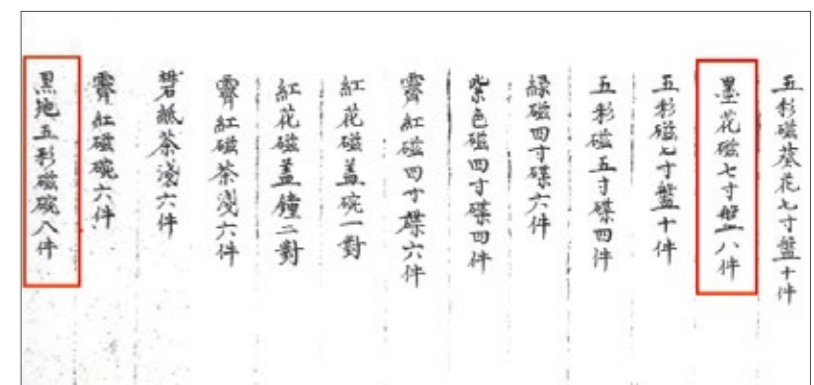 五彩磁葵花七寸盤十件
墨花磁七寸盤八件
五彩磁七寸盤十件
五彩磁五寸碟四件
綠磁四寸碟六件
紫色磁四寸碟四件
霽紅磁四寸碟六件
紅花磁蓋碗一對
紅花磁蓋鐘二對
霽紅磁茶淺六件
礬紙茶淺六件
霽紅磁碗六件
黑地五彩磁碗八件